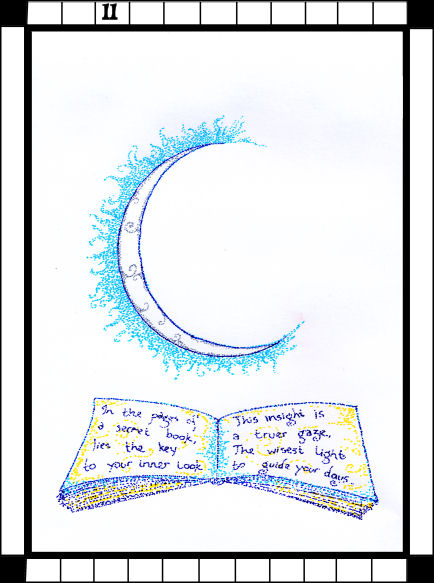 11
In the pages of
a secret book,
lies the key
to your inner look
This insight is
a truer gaze,
The wisest light
to guide your days